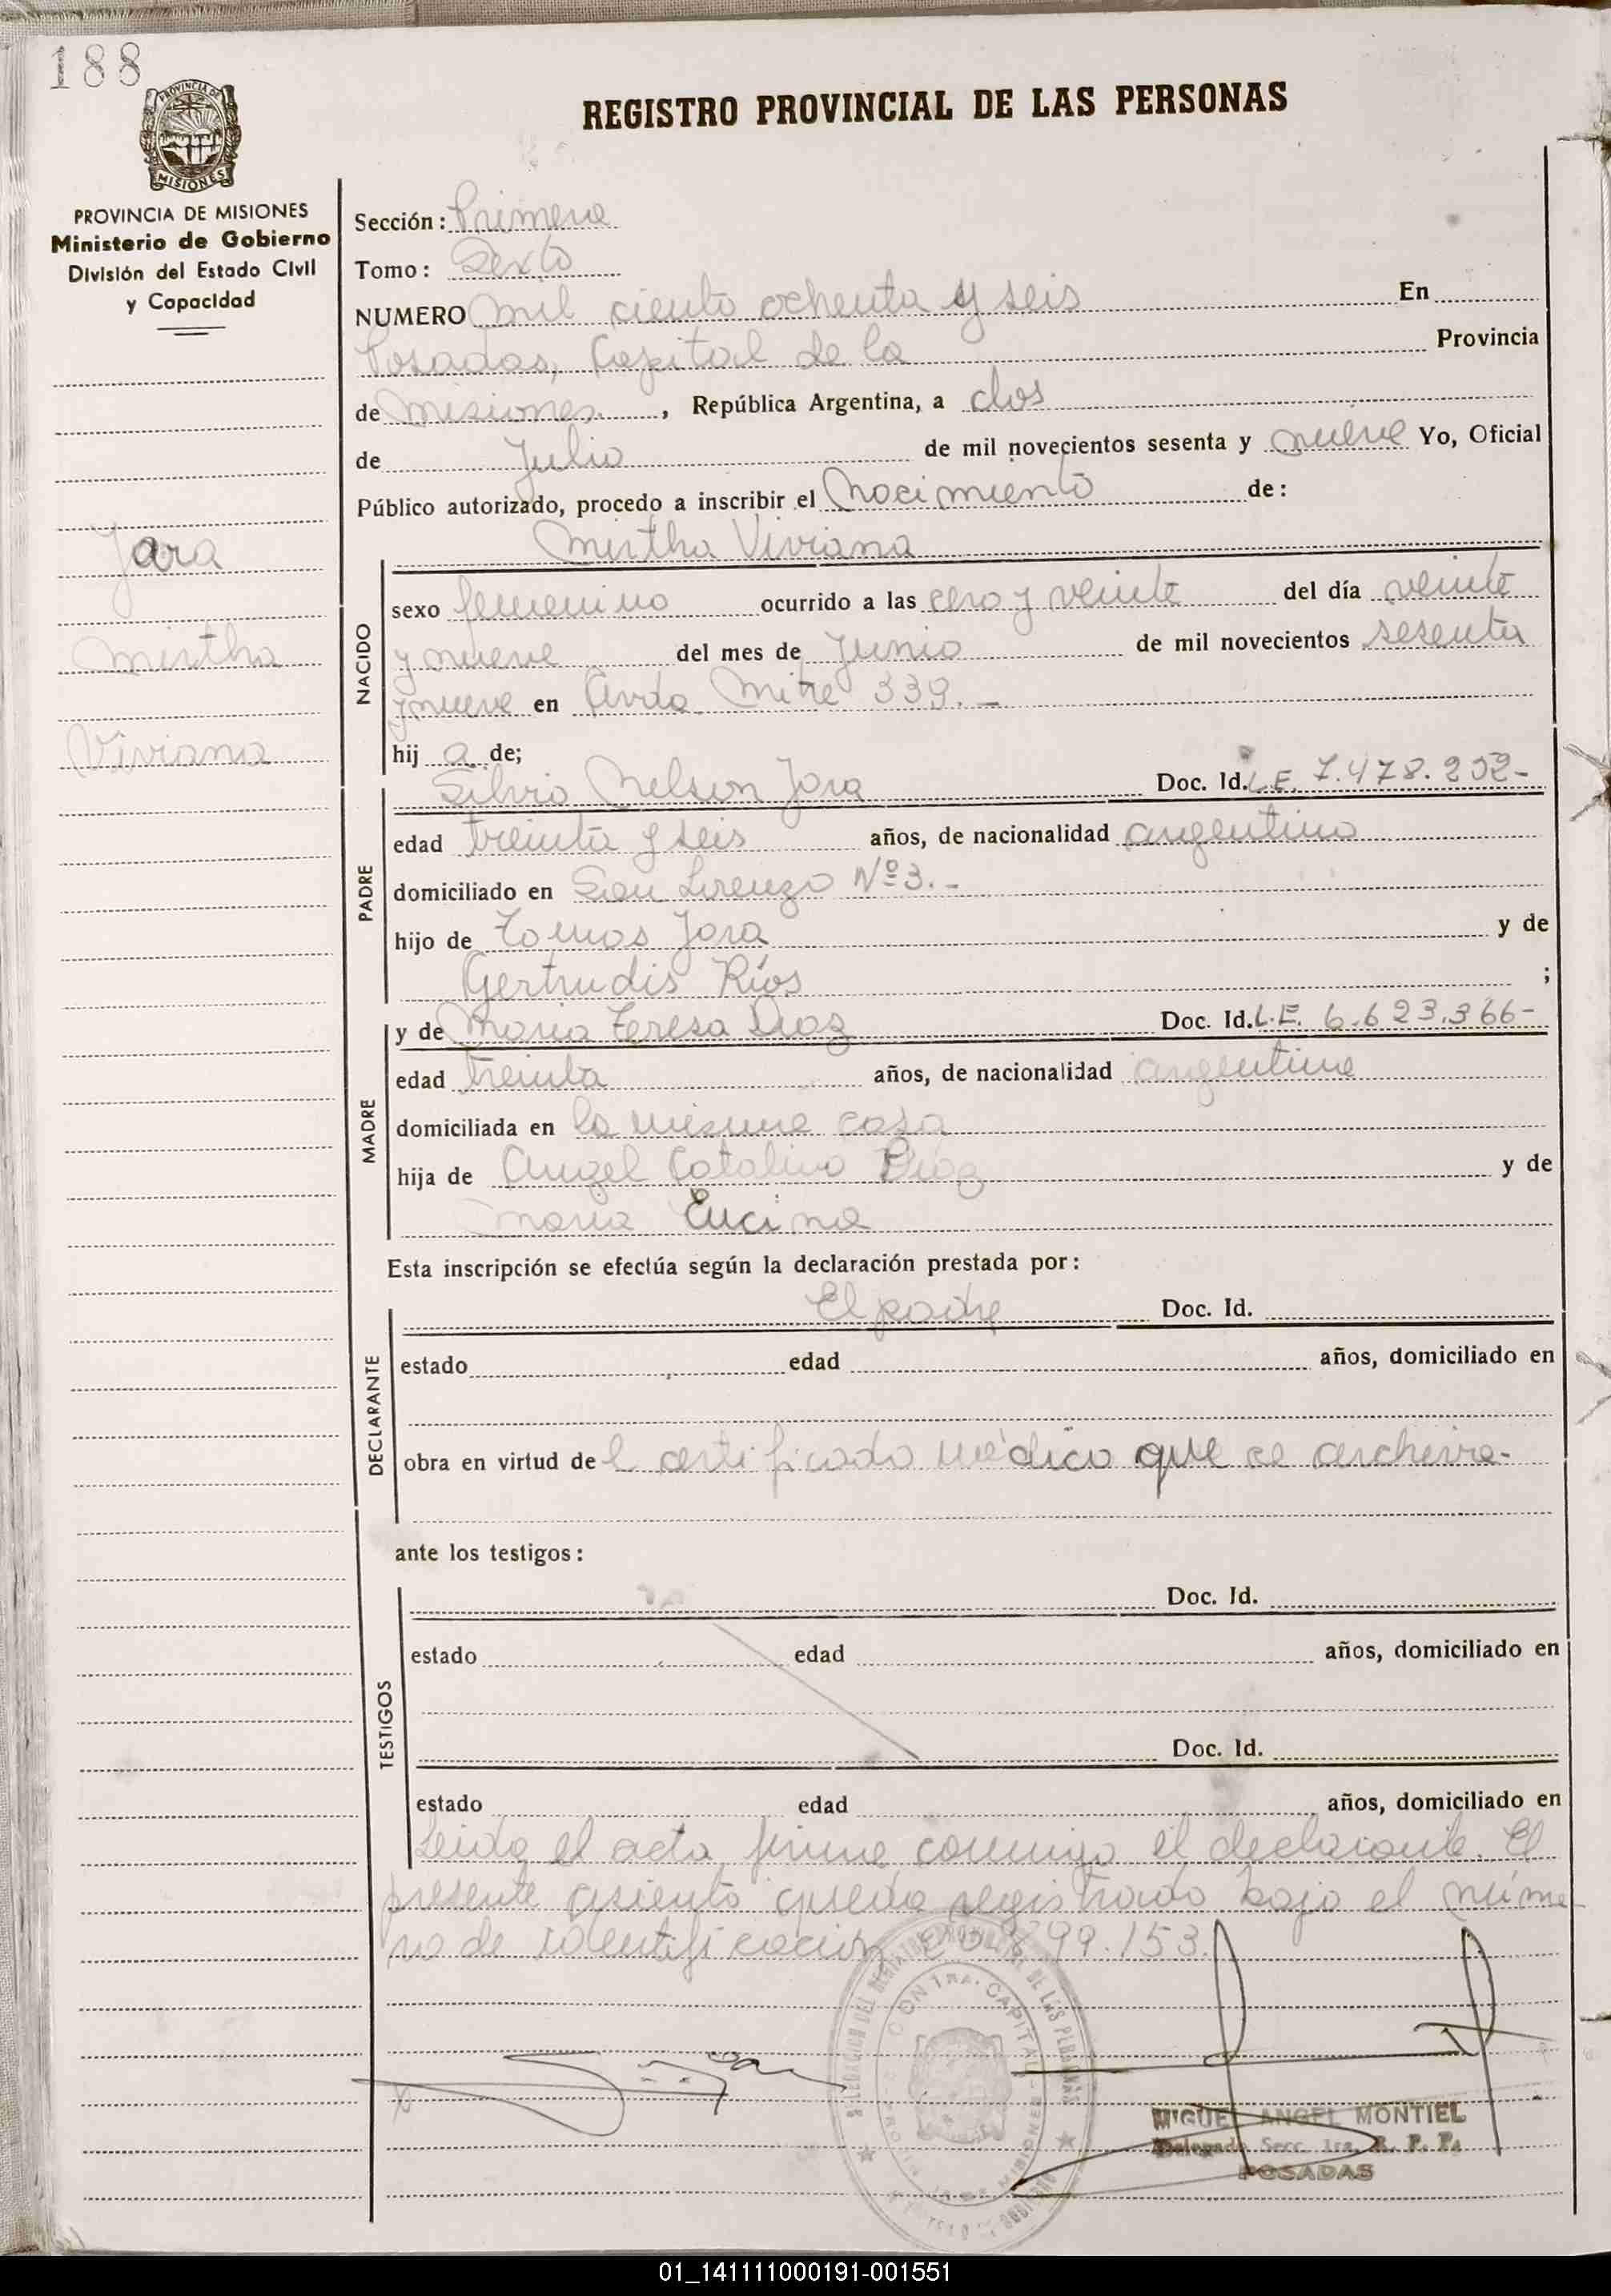 188
PROVINCIA DE
MISIONES
REGISTRO PROVINCIAL DE LAS PERSONAS
PROVINCIA DE MISIONES
Ministerio de Gobierno
División del Estado Civil
y Capacidad
Jara
Mirtha
Viviana
Sección: Primera
Tomo: Sexto
NUMERO mil ciento ochenta y seis En
Posadas, Capital de la Provincia
de Misiones, República Argentina, a dos
de Julio de mil novecientos sesenta y nueve Yo, Oficial
Público autorizado, procedo a inscribir el Nacimiento de:
Mirtha Viviana
NACIDO
sexo femenino ocurrido a las cero y veinte del día veinte
y nueve del mes de Junio de mil novecientos sesenta
y nueve en Avda. Mitre 339.-
hij a de;
PADRE
Silvio Nelson Jara Doc. Id. L.E. 7.478.202-
edad treinta y seis años, de nacionalidad argentino
domiciliado en San Lorenzo Nº 3.-
hijo de Tomas Jara y de
Gertrudis Ríos ;
MADRE
y de Maria Teresa Diaz Doc. Id. L.E. 6.623.366-
edad treinta años, de nacionalidad argentina
domiciliada en la misma casa
hija de Angel Catalino Diaz y de
Maria Encina
Esta inscripción se efectúa según la declaración prestada por:
DECLARANTE
El padre Doc. Id.
estado edad años, domiciliado en
obra en virtud de l certificado médico que se archiva-
ante los testigos:
TESTIGOS
Doc. Id.
estado edad años, domiciliado en
Doc. Id.
estado edad años, domiciliado en
Leida el acta, firma conmigo el declarante. El
presente asiento queda registrado bajo el núme
ro de identificación 20.899.153.
MIGUEL ANGEL MONTIEL
Delegado Secc. 1ra. R. P. P.
POSADAS
01_141111000191-001551